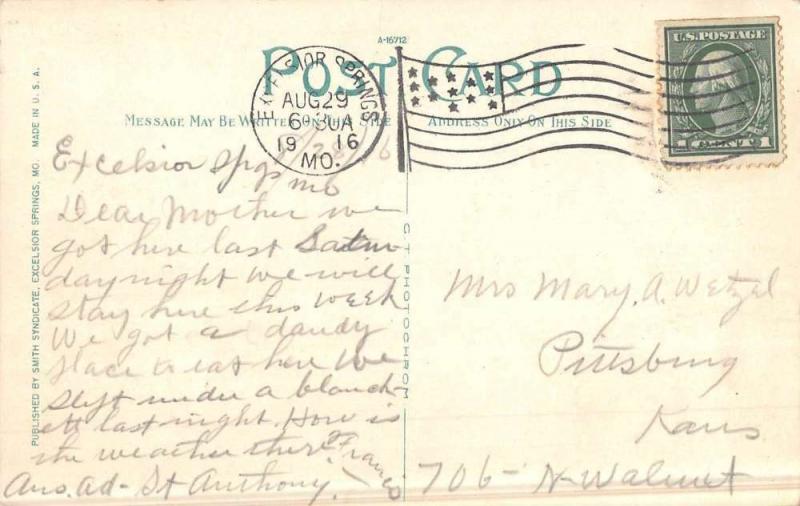 A-16712
POST CARD
MESSAGE MAY BE WRITTEN ON THIS SIDE
ADDRESS ONLY ON THIS SIDE
EXCELSIOR SPRINGS
AUG 29
6 30A
1916
MO.
U.S. POSTAGE
1 CENT 1
PUBLISHED BY SMITH SYNDICATE, EXCELSIOR SPRINGS, MO. MADE IN U. S. A.
C. T. PHOTOCHROM
8/28/16
Excelsior Spgs Mo
Dear Mother we
got here last Satur
day night We will
stay here this week
We got a dandy
place to eat here We
slept under a blank-
ett last night. How is
the weather there. Francis
Ans. ad- St Anthony.
Mrs Mary. A. Wetzel
Pittsburg
Kans
706- N- Walnut